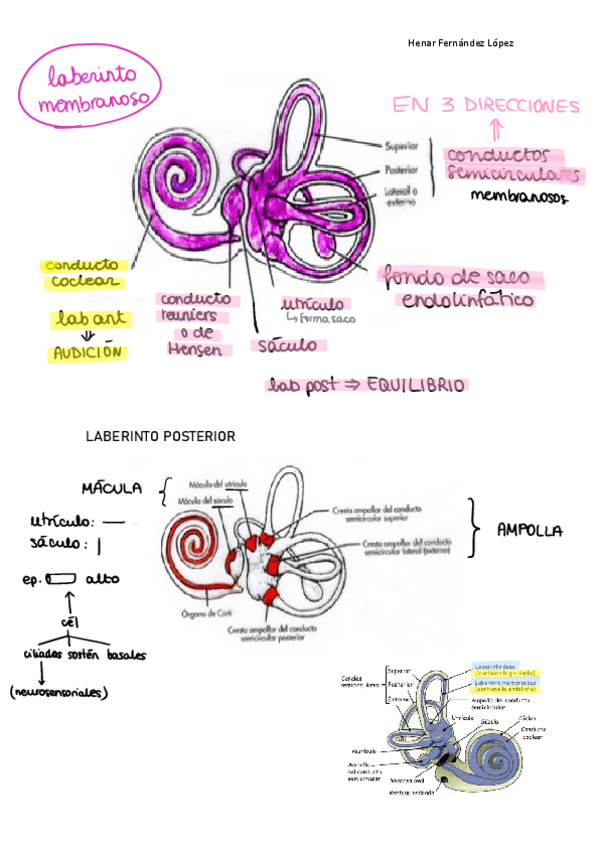 Henar Fernández López
laberinto
membranoso
EN 3 DIRECCIONES
Superior
Posterior
Lateral o
externo
conductos
semicirculares
membranosos
conducto
coclear
lab ant
AUDICIÓN
conducto
reuniers
o de
Hensen
utrículo
forma saco
sáculo
fondo de saco
endolinfático
lab post ⇒ EQUILIBRIO
LABERINTO POSTERIOR
MÁCULA
utrículo: —
sáculo: |
ep. alto
cél
ciliadas sostén basales
(neurosensoriales)
Mácula del utrículo
Mácula del sáculo
Cresta ampollar del conducto
semicircular superior
Cresta ampollar del conducto
semicircular lateral (externo)
AMPOLLA
Órgano de Corti
Cresta ampollar del conducto
semicircular posterior
Canales
semicirculares
Superior
Posterior
Externo
Laberinto óseo
(contiene la perilinfa)
Laberinto membranoso
(contiene la endolinfa)
Ampolla del conducto
semicircular
Utrículo
Sáculo
Cóclea
Conducto
coclear
Vestíbulo
Ampolla
del conducto
semicircular
Ventana oval
Ventana redonda